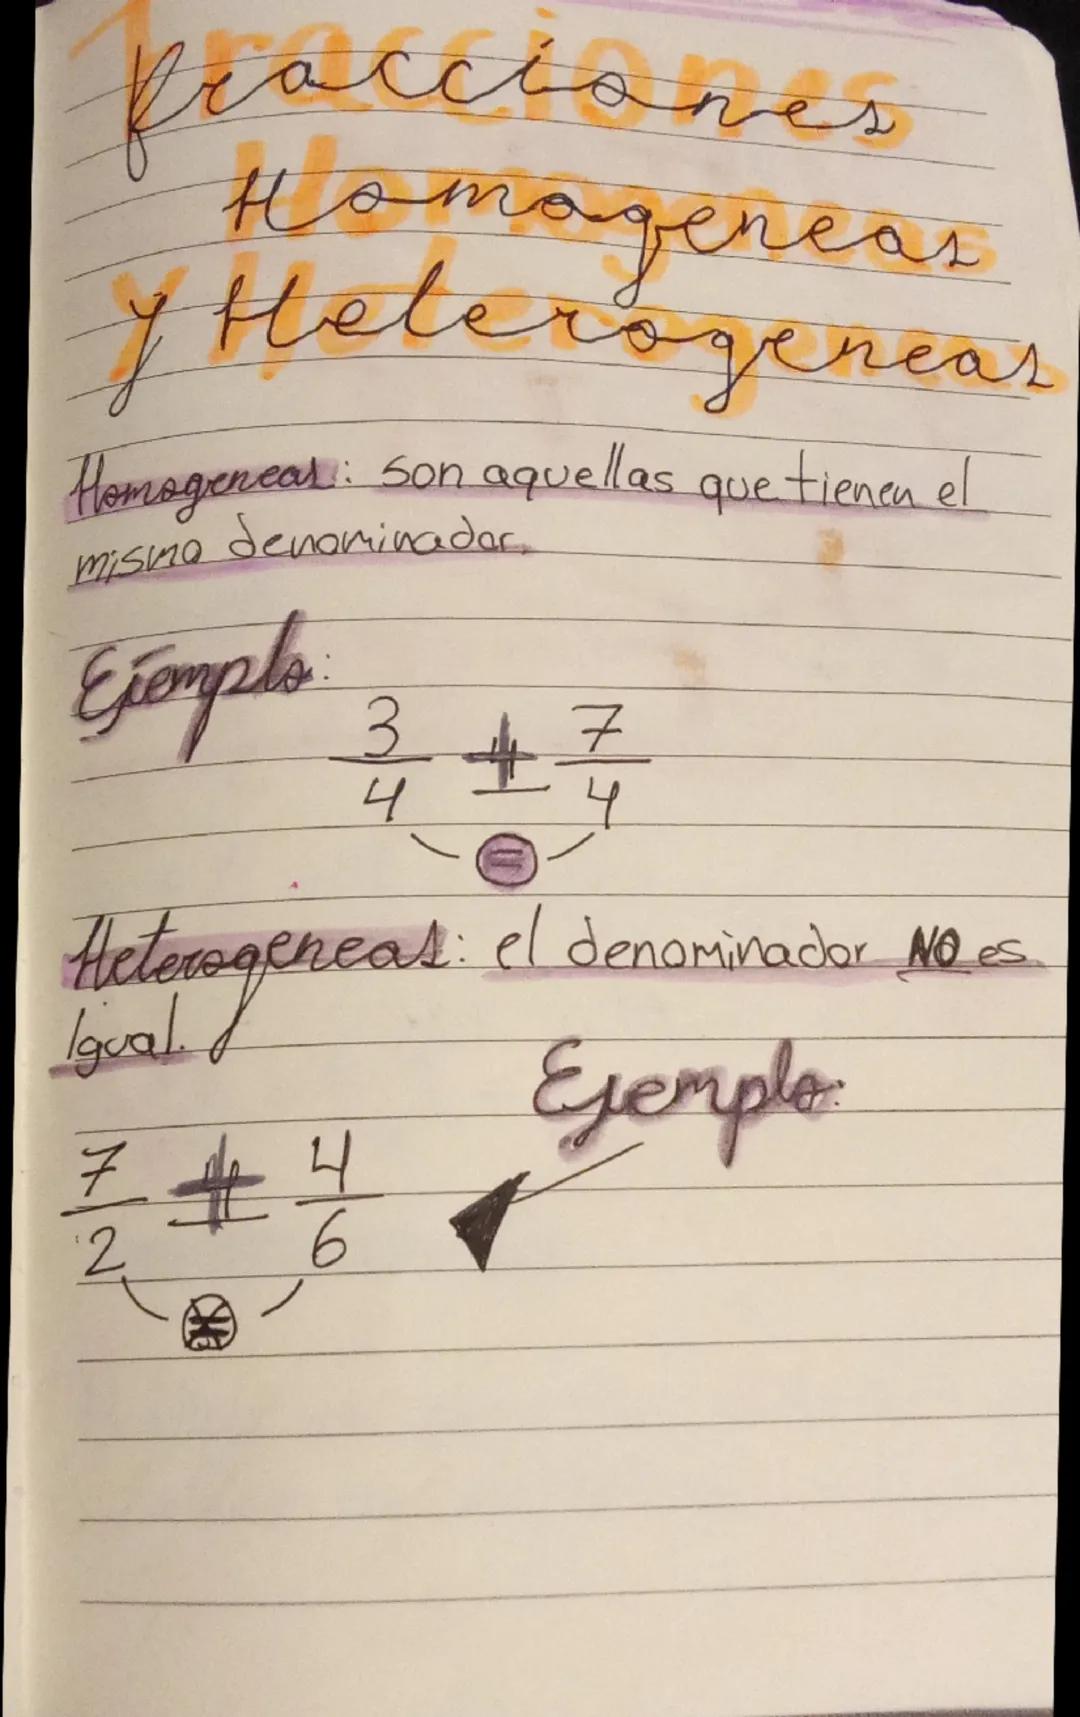 fracciones
Homogeneas
y Heterogeneas
Homogeneas: son aquellas que tienen el
mismo denominador.
Ejemplo:
3/4 ± 7/4
=
Heterogeneas: el denominador NO es
Igual.
Ejemplo:
7/2 ± 4/6
≠